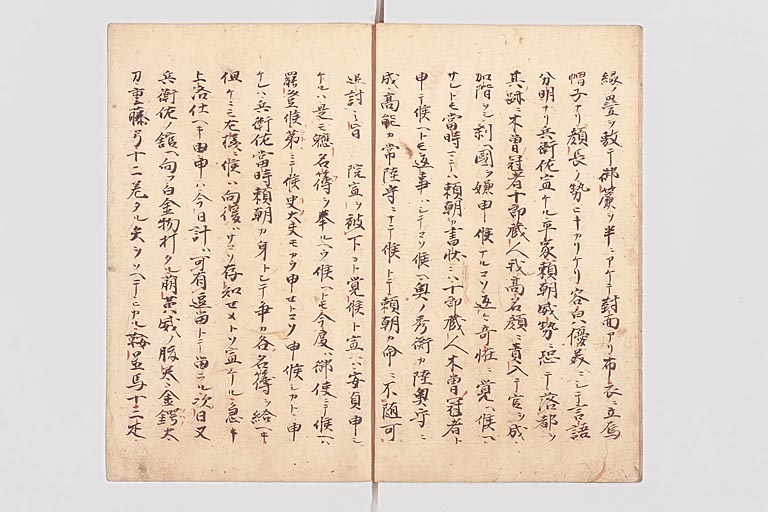 縁ノ畳ヲ敷テ御簾ヲ半ニアケテ対面アリ布衣ニ立烏
帽子ナリ顔長ノ勢ヒキカリケリ容皃優美ニシテ言語
分明ナリ兵衛佐宣ケルハ平家頼朝威勢ニ恐テ落都ヲ
其跡ニ木曽冠者十郎蔵人我高名顔ニ責入テ官ヲ成
加階ヲシ剰ヘ國ヲ嫌申候ナルコソ返々奇恠ニ覚ヘ候ヘ
サレトモ當時マテハ頼朝カ書状ニハ十郎蔵人木曽冠者ト
申テ候ヘトモ返事ハシテコソ候ヘ奥ノ秀衡カ陸奥守ニ
成高能カ常陸守ニナテ候トテ頼朝カ命ニ不随可
追討之旨 院宣ヲ被下コト覚候ト宣ヘハ安貞申シ
ケルハ是モ應名簿ヲ奉ルヘウ候ヘトモ今度ハ御使ニテ候ヘハ
罷登候弟ニテ候史大夫モカウ申セトコソ申候シカト申
ケレハ兵衛佐當時頼朝カ身トシテ争カ各名簿ヲ給ヘキ
但ケニモ左様ニ候ハヽ向後ハサコソ存知セメトソ宣ケル急キ
上洛仕ヘキ由申ハ今日計ハ可有逗留トテ留ラル次日又
兵衛佐ノ舘ヘ向フ白金物打タル萌黄威ノ腹巻ニ金鍔太
刀重藤弓十二差タル矢ヲソヘテヒカル鞍置馬十三疋